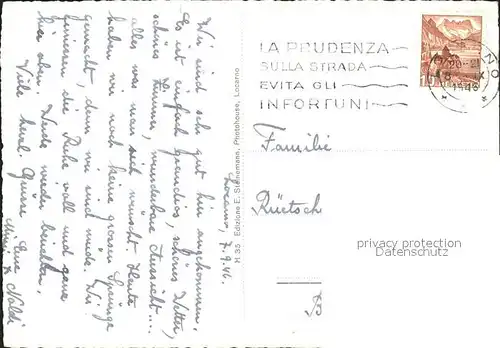 Locarno, 7.9.46.
Wir sind sehr gut hier angekommen.
Es ist einfach grandios, schönes Wetter,
schönes Zimmer, wunderbare Aussicht ....
alles was man sich wünscht. Heute
haben wir noch keine grossen Sprünge
gemacht, denn wir sind müde. Wir
geniessen die Ruhe voll und ganz
hier oben. Werde wieder berichten,
Viele herzl. Grüsse Eure
Mimi & Noldi
H 35 Edizione E. Steinemann, Photohouse, Locarno
LA PRUDENZA
SULLA STRADA
EVITA GLI
INFORTUNI
10
1946
Familie
Rüetsch
B
privacy protection
Datenschutz